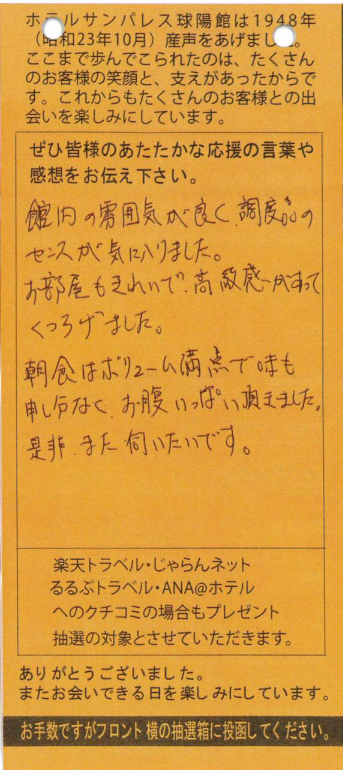 ホテルサンパレス球陽館は1948年
（昭和23年10月）産声をあげました。
ここまで歩んでこられたのは、たくさん
のお客様の笑顔と、支えがあったからで
す。これからもたくさんのお客様との出
会いを楽しみにしています。
ぜひ皆様のあたたかな応援の言葉や
感想をお伝え下さい。
館内の雰囲気が良く、調度品の
センスが気に入りました。
お部屋もきれいで、高級感があって
くつろげました。
朝食はボリューム満点で味も
申し分なく、お腹いっぱい頂きました。
是非、また伺いたいです。
楽天トラベル・じゃらんネット
るるぶトラベル・ANA@ホテル
へのクチコミの場合もプレゼント
抽選の対象とさせていただきます。
ありがとうございました。
またお会いできる日を楽しみにしています。
お手数ですがフロント横の抽選箱に投函してください。